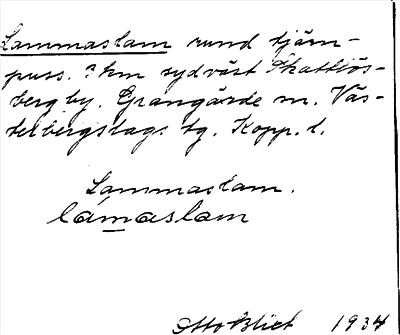 Lammaslam rund tjärn-
puss. ? km sydväst Skattlös-
berg by. Grangärde sn. Väs-
terbergslags tg. Kopp. l.
Lammaslam.
lámaslam
Otto Blixt 1934